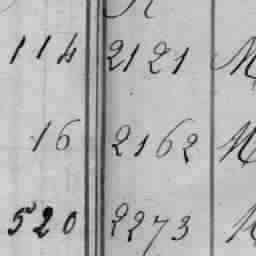 114 2121 M
16 2162 M
520 2273